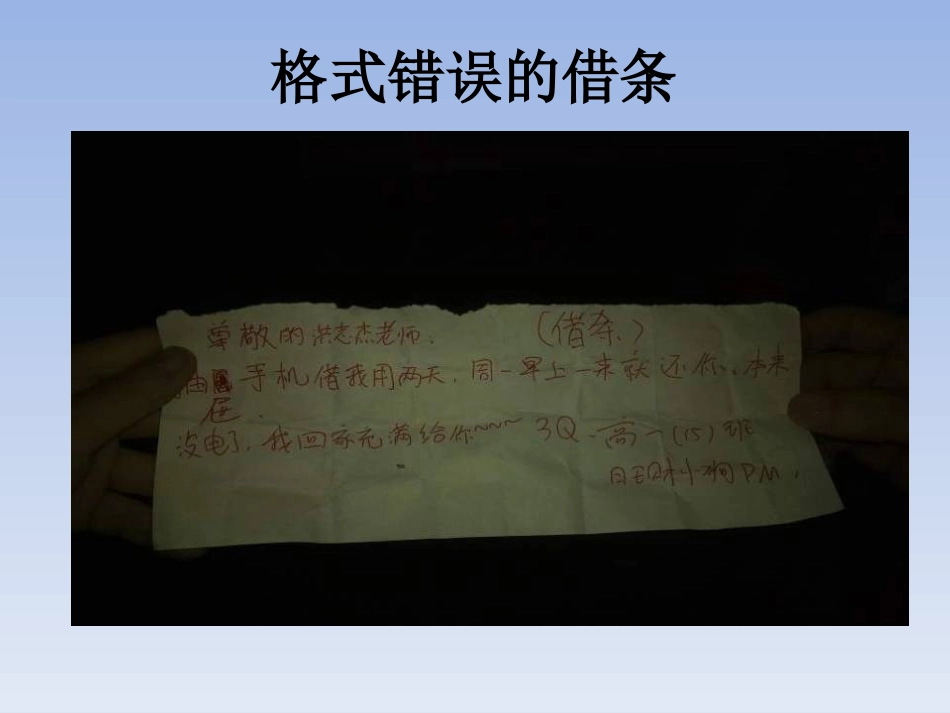 格式错误的借条
尊敬的洪志杰老师. (借条)
手机借我用两天，周一早上一来就还你。本来
没电了，我回家充满给你~~~ 3Q. 高一(15)班
PM.